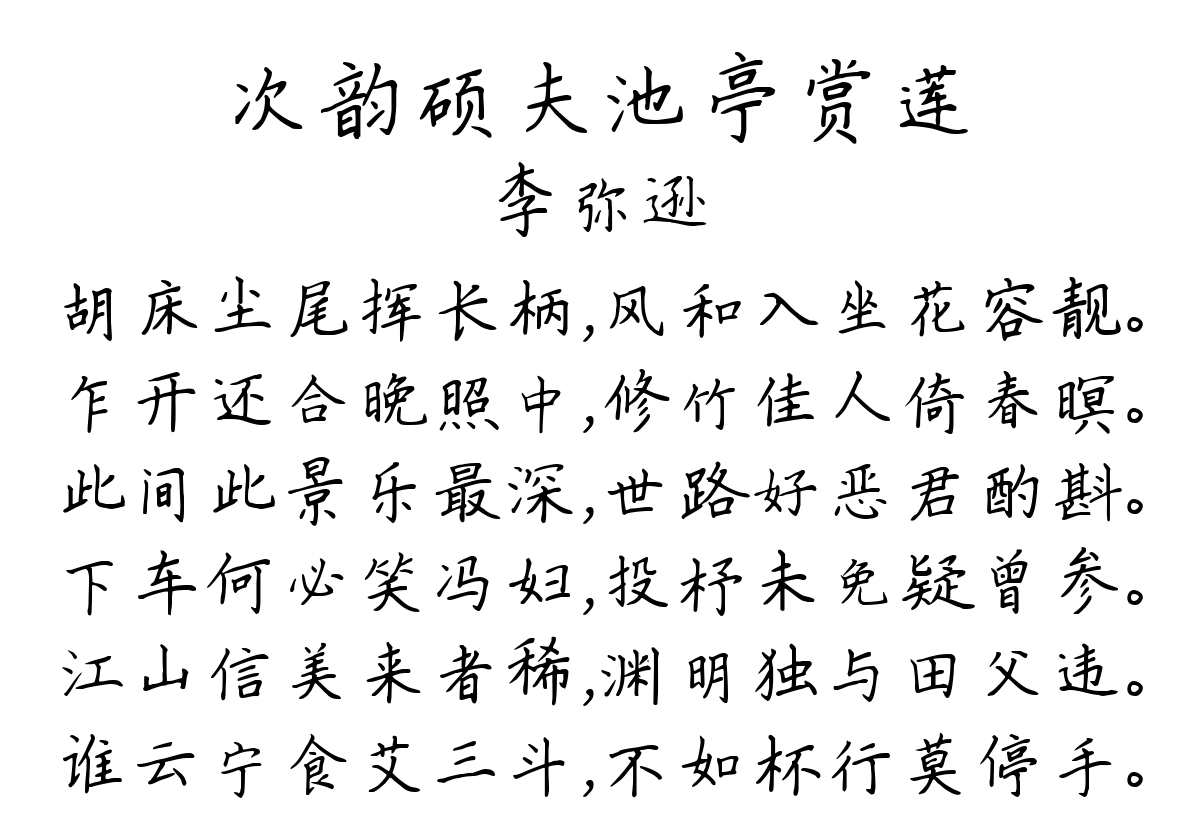 次韵硕夫池亭赏莲
李弥逊
胡床尘尾挥长柄,风和入坐花容靓。
乍开还合晚照中,修竹佳人倚春暝。
此间此景乐最深,世路好恶君酌斟。
下车何必笑冯妇,投杼未免疑曾参。
江山信美来者稀,渊明独与田父违。
谁云宁食艾三斗,不如杯行莫停手。